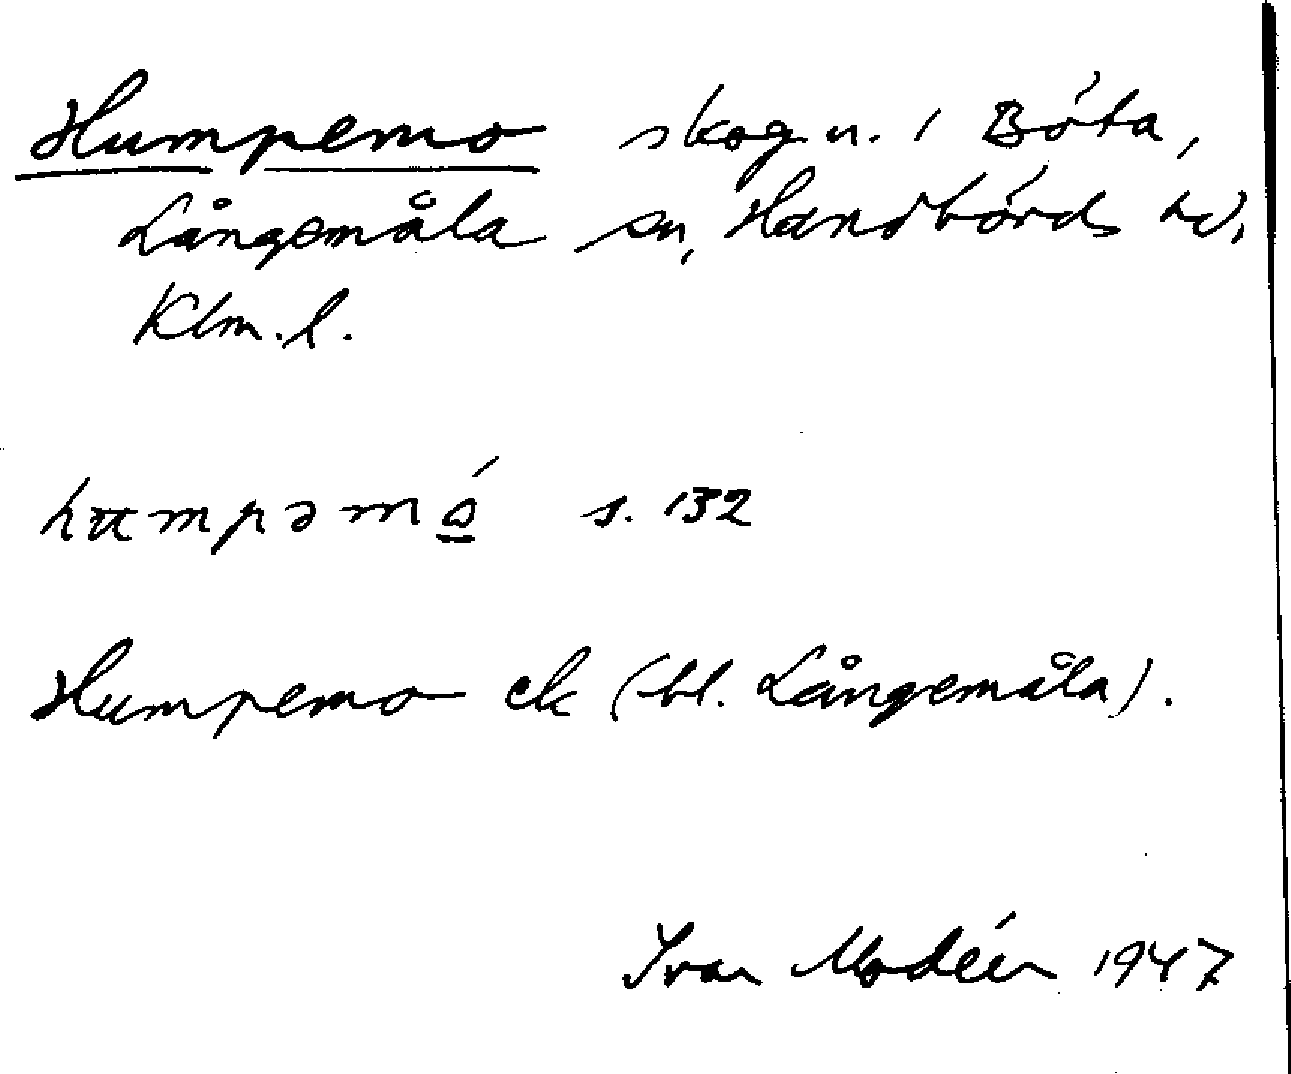 Humpemo skog n. i Böta,
Långemåla sn, Handbörds hd,
Klm. l.
humpəmó s. 132
Humpemo ek (bl. Långemåla).
Ivar Modéer 1947